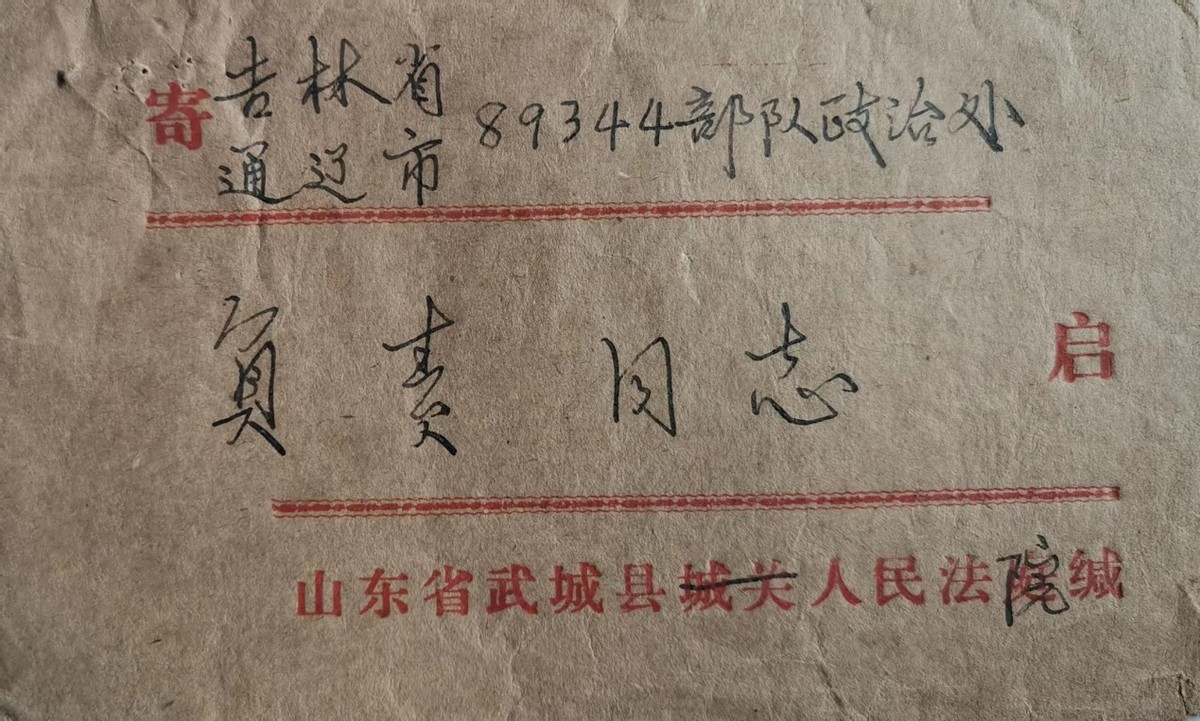 寄 吉林省
通辽市 89344部队政治处
負责 同志 启
山东省武城县城关人民法院缄